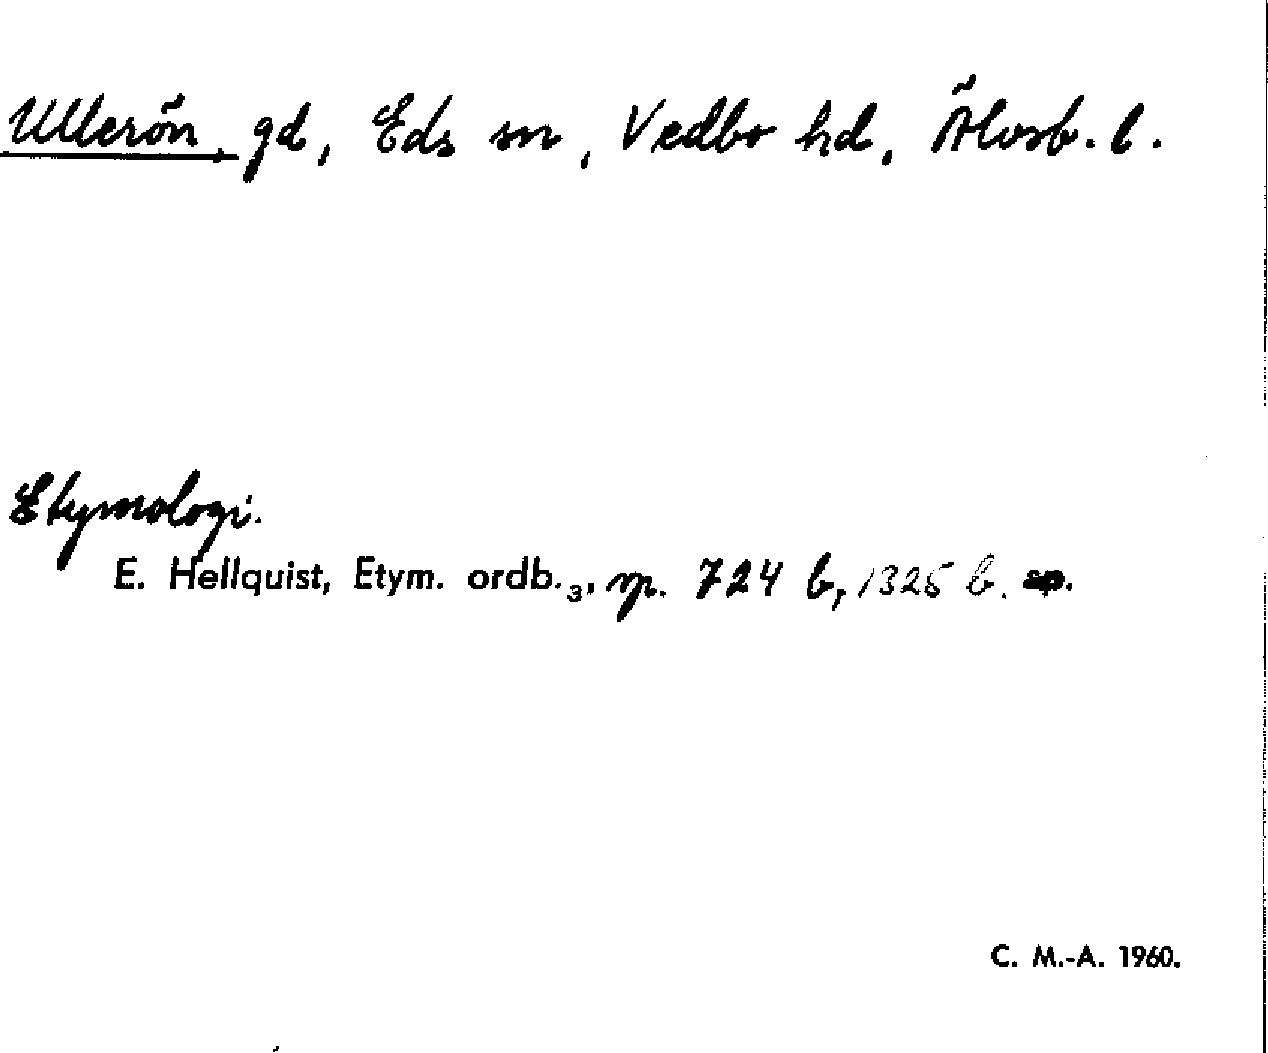 Ullerön, gd, Eds sn, Vedbo hd, Älvsb. l.
Etymologi.
E. Hellquist, Etym. ordb.₃, sp. 724 b, 1325 b.
C. M.-A. 1960.